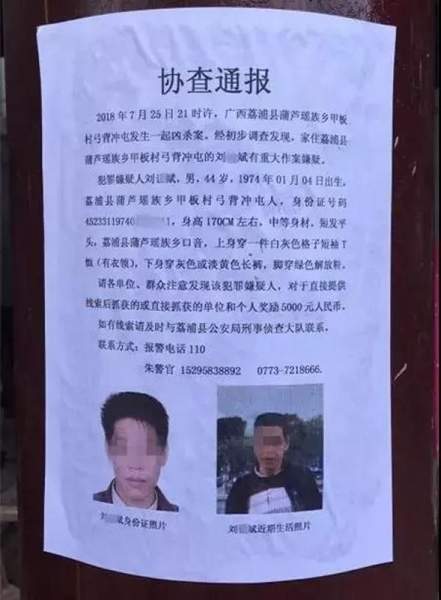 协查通报
2018年7月25日21时许，广西荔浦县蒲芦瑶族乡甲板
村弓背冲屯发生一起凶杀案。经初步调查发现，家住荔浦县
蒲芦瑶族乡甲板村弓背冲屯的刘 斌有重大作案嫌疑。
犯罪嫌疑人刘 斌，男，44岁，1974年01月04日出生，
荔浦县蒲芦瑶族乡甲板村弓背冲屯人，身份证号码
45233119740 1，身高170CM左右，中等身材，短发平
头，荔浦县蒲芦瑶族乡口音，上身穿一件白灰色格子短袖T
恤（有衣领），下身穿灰色或淡黄色长裤，脚穿绿色解放鞋。
请各单位、群众注意发现该犯罪嫌疑人，对于直接提供
线索后抓获的或直接抓获的单位和个人奖励5000元人民币。
如有线索请及时与荔浦县公安局刑事侦查大队联系。
联系方式：报警电话110
朱警官 15295838892 0773-7218666.
刘 斌身份证照片
刘 斌近期生活照片